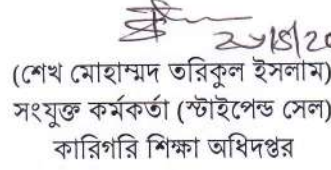 (শেখ মোহাম্মদ তরিকুল ইসলাম)
সংযুক্ত কর্মকর্তা (স্টাইপেন্ড সেল)
কারিগরি শিক্ষা অধিদপ্তর